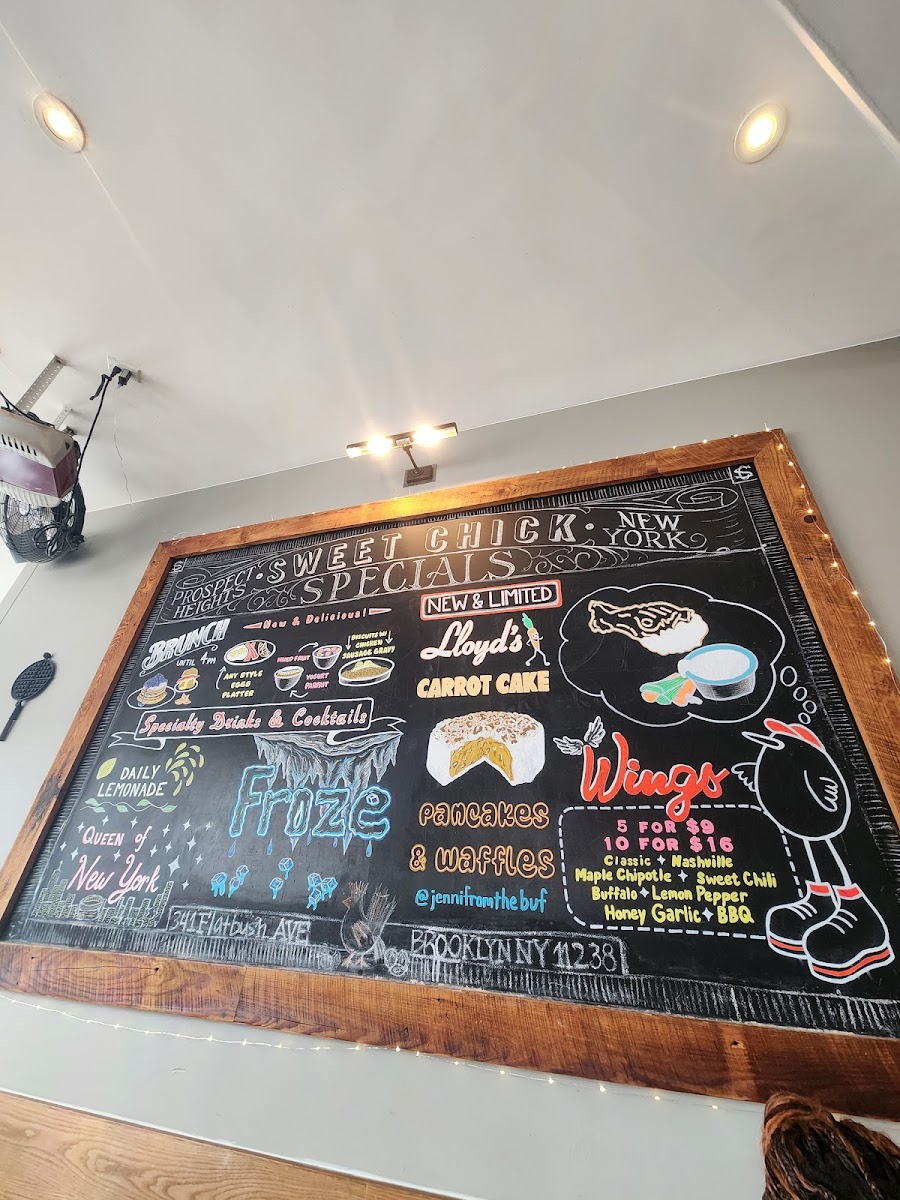 SWEET CHICK · NEW YORK
PROSPECT HEIGHTS · SPECIALS
BRUNCH
UNTIL 4PM
New & Delicious!
ANY STYLE
EGGS
PLATTER
MIXED FRUIT
YOGURT
PARFAIT
BISCUITS W/
CHICKEN
SAUSAGE GRAVY
Specialty Drinks & Cocktails
DAILY
LEMONADE
QUEEN OF
New York
Froze
NEW & LIMITED
Lloyd's
CARROT CAKE
PANCAKES
& WAFFLES
@jennifromthebuf
Wings
5 FOR $9
10 FOR $16
Classic ✦ Nashville
Maple Chipotle ✦ Sweet Chili
Buffalo ✦ Lemon Pepper
Honey Garlic ✦ BBQ
341 Flatbush AVE
BROOKLYN NY 11238